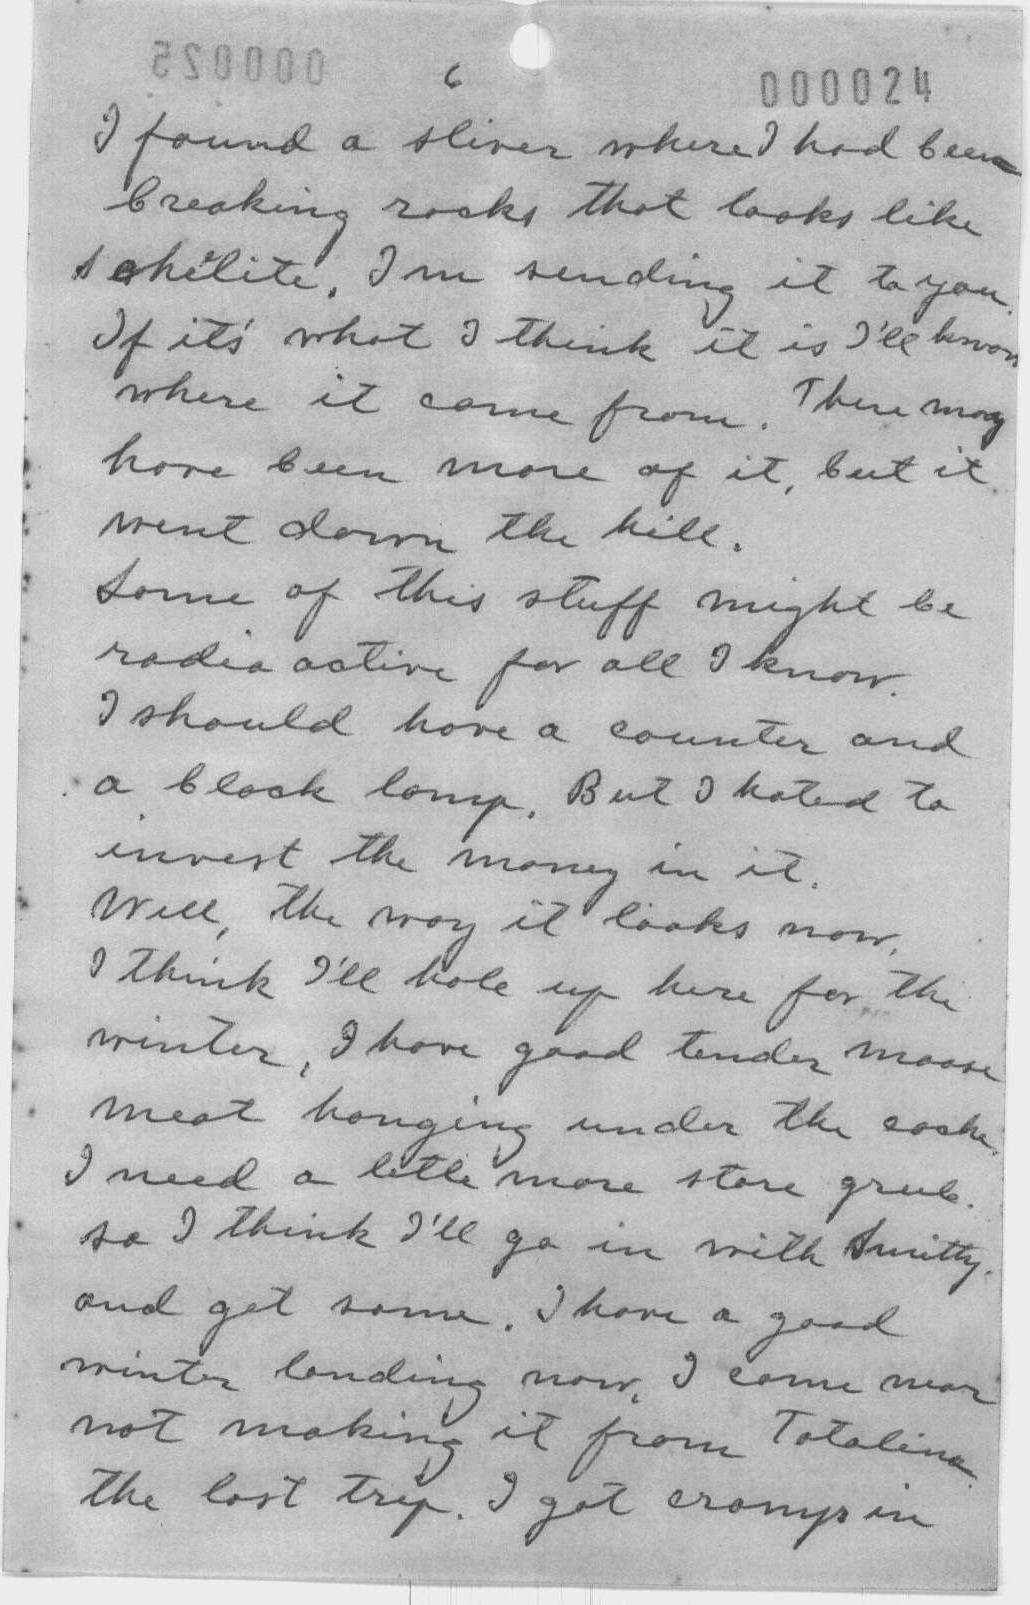 000025
6
000024
I found a sliver where I had been
breaking rocks that looks like
schelite. I'm sending it to you.
If it's what I think it is I'll know
where it came from. There may
have been more of it, but it
went down the hill.
Some of this stuff might be
radio active for all I know.
I should have a counter and
a black lamp. But I hated to
invest the money in it.
Well, the way it looks now,
I think I'll hole up here for the
winter, I have good tender moose
meat hanging under the cache.
I need a little more store grub.
so I think I'll go in with Smitty.
and get some. I have a good
winter landing now, I came near
not making it from Tatalina
the last trip. I got cramps in